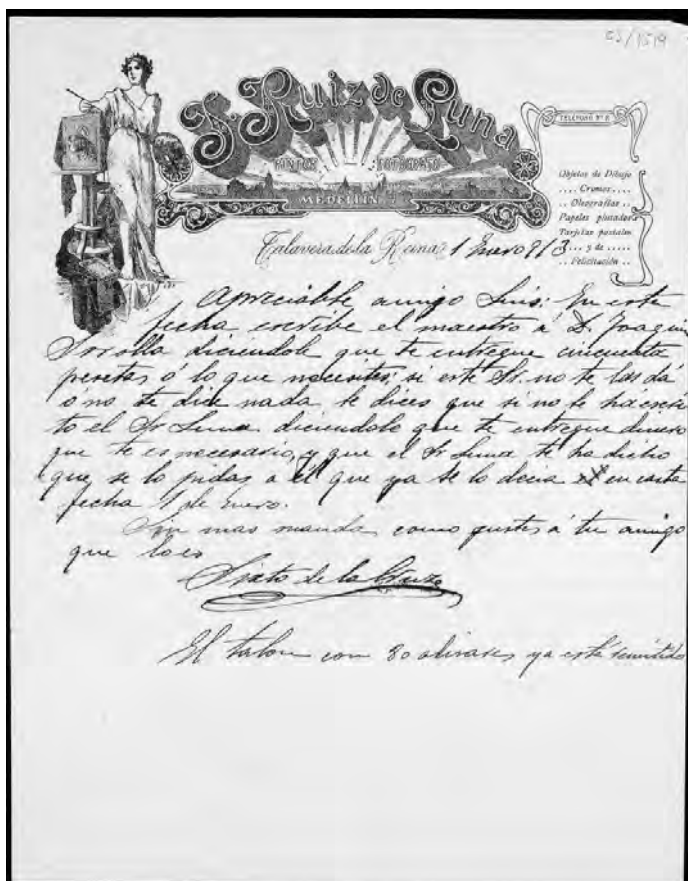 CS/1519
J. Ruiz de Luna
PINTOR FOTÓGRAFO
MEDELLIN
TELÉFONO Nº 8
Objetos de Dibujo
.... Cromos ....
.. Oleografías ..
Papeles pintados
Tarjetas postales
.... y de .....
.. Felicitación ..
Talavera de la Reina 1 Enero 913
Apreciable amigo Luis: En esta
fecha escribe el maestro á D. Joaquin
Sorolla diciendole que te entregue cincuenta
pesetas ó lo que necesites; si este Sr. no te las dá
ó no te dice nada le dices que si no le ha escri
to el Sr Luna diciendole que te entregue dinero
que te es necesario, y que el Sr Luna te ha dicho
que se lo pidas a él que ya se lo decia en carta
fecha 1 de enero.
Sin mas manda como gustes á tu amigo
que lo es
Sixto de la Cruz
El talon con 80 ya esta remitido